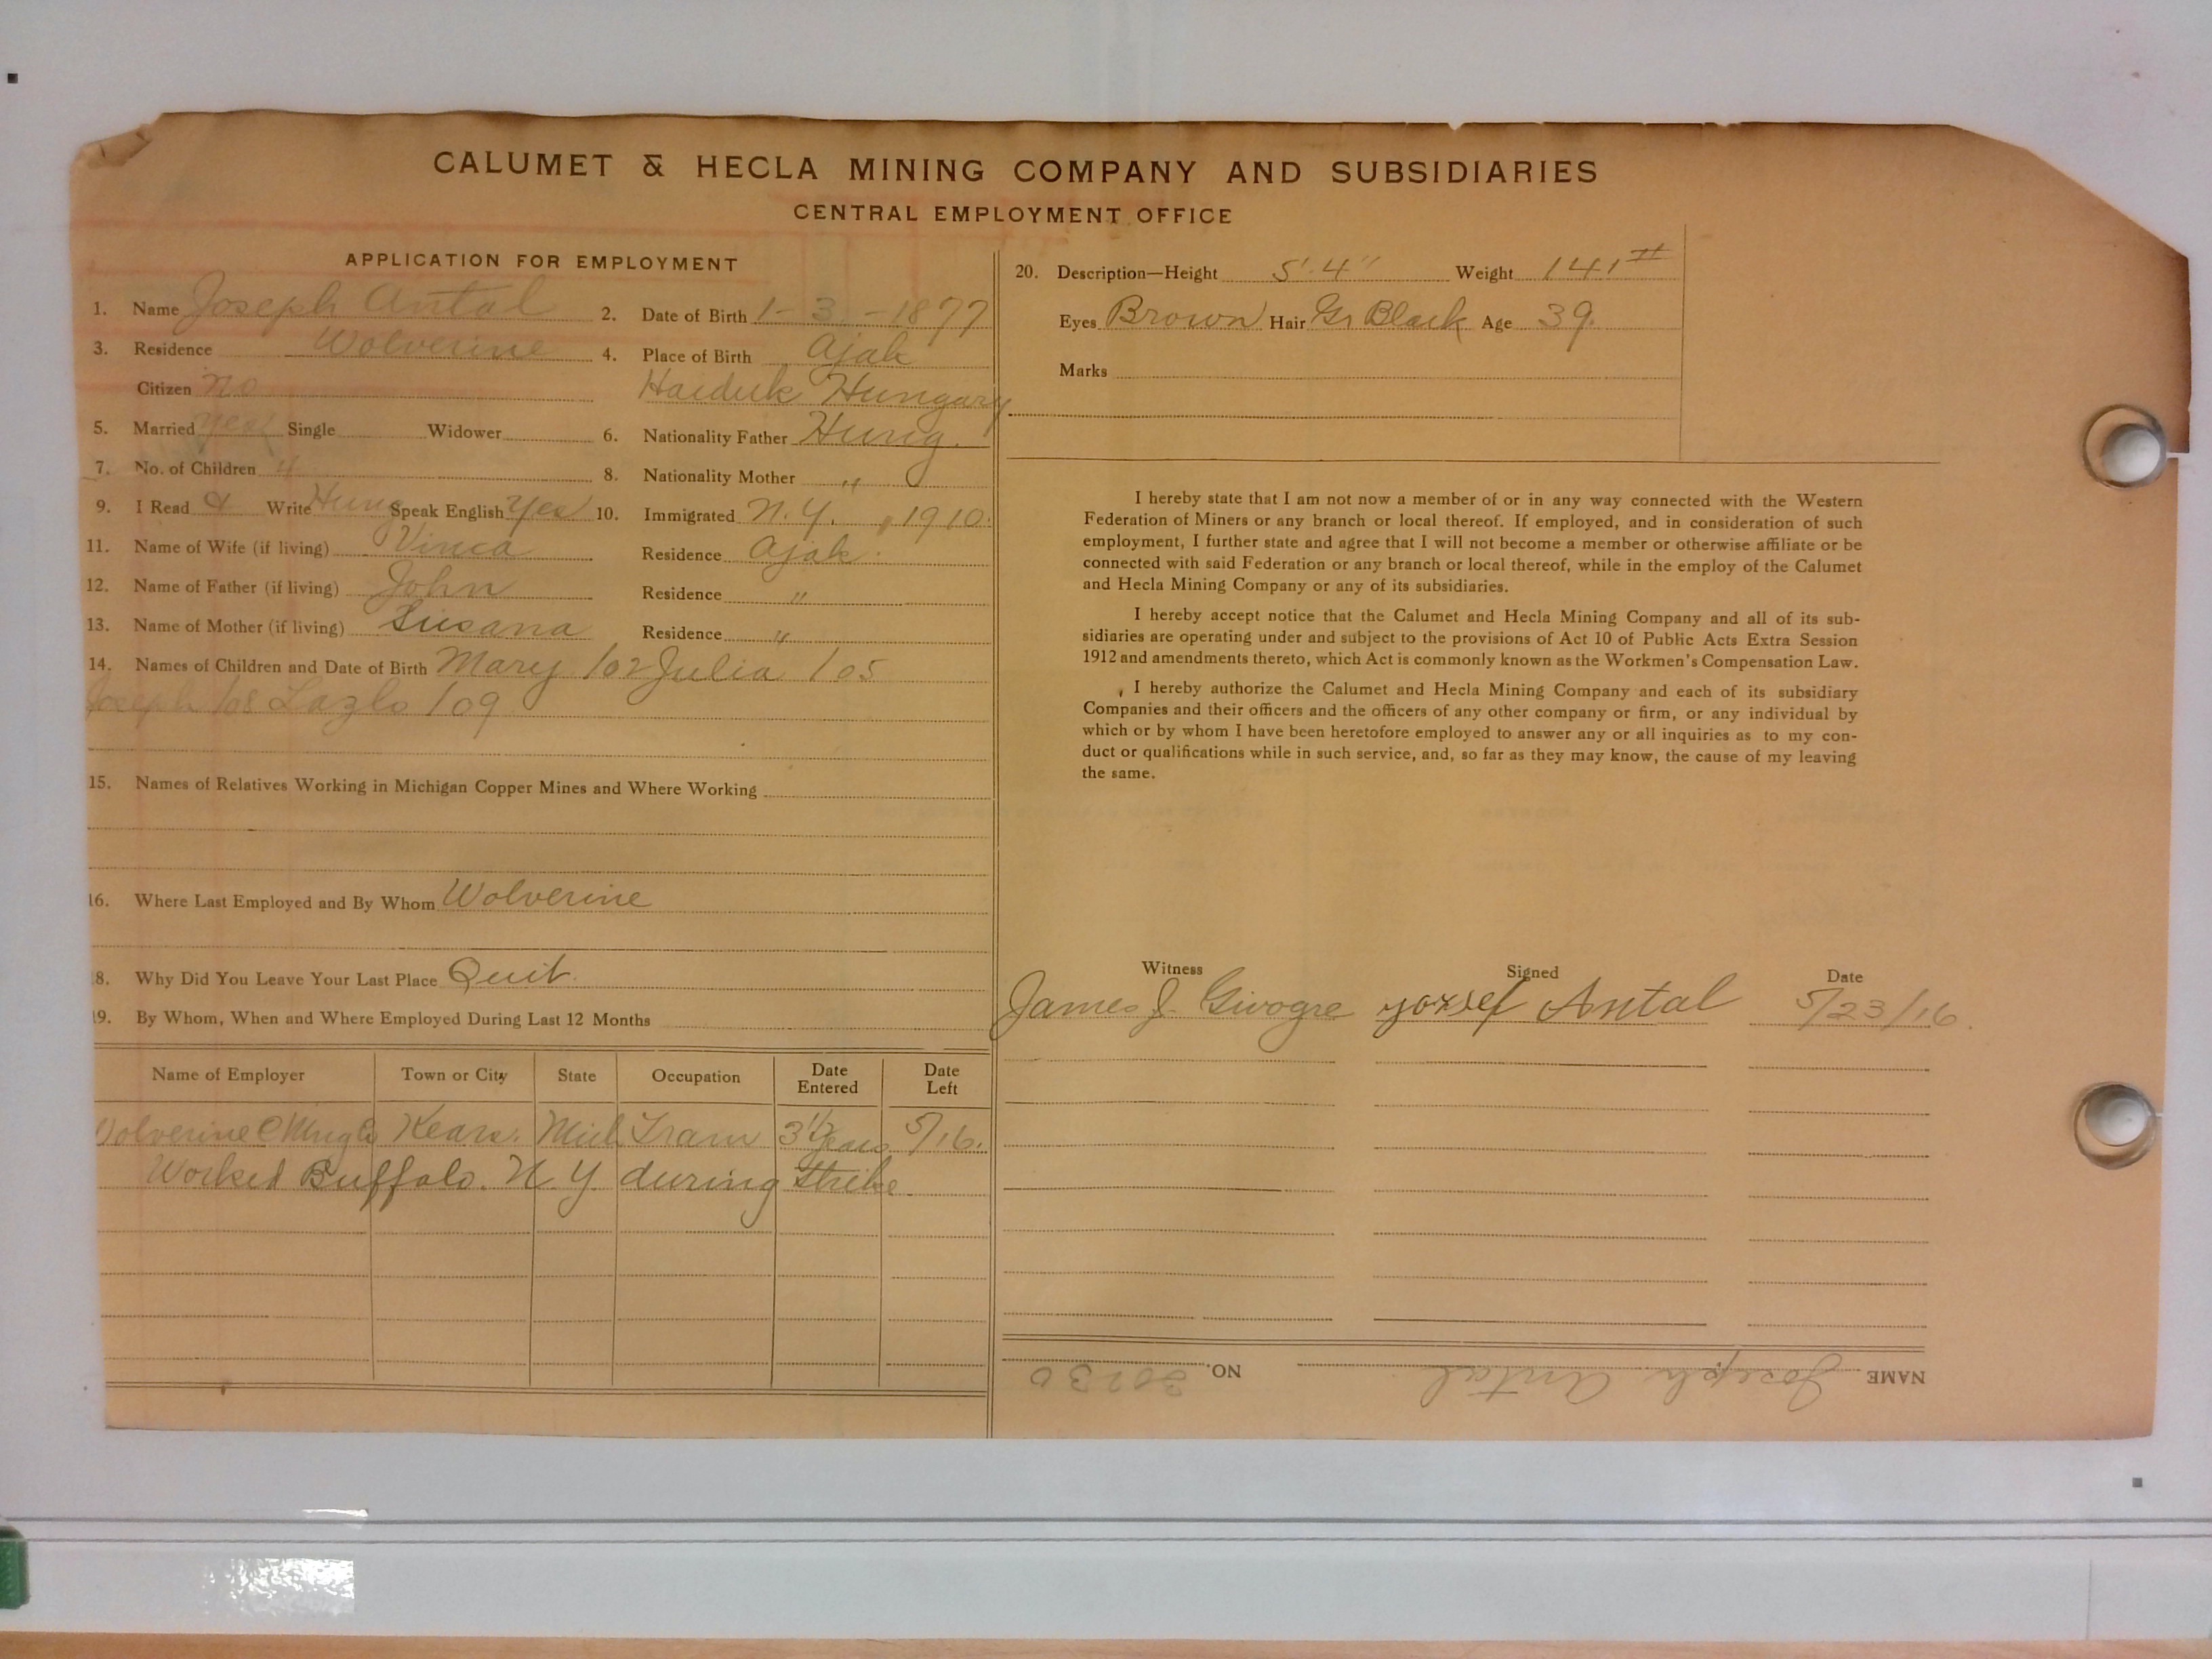 CALUMET & HECLA MINING COMPANY AND SUBSIDIARIES
CENTRAL EMPLOYMENT OFFICE
APPLICATION FOR EMPLOYMENT
1. Name Joseph Antal 2. Date of Birth 1-3-1877
3. Residence Wolverine 4. Place of Birth Ajak
Citizen no Haiduk Hungary
5. Married yes Single Widower 6. Nationality Father Hung.
7. No. of Children 4 8. Nationality Mother "
9. I Read & Write Hung Speak English Yes 10. Immigrated N.Y. 1910.
11. Name of Wife (if living) Vinca Residence Ajak.
12. Name of Father (if living) John Residence "
13. Name of Mother (if living) Susana Residence "
14. Names of Children and Date of Birth Mary /02 Julia /05
Joseph /08 Lazlo /09
15. Names of Relatives Working in Michigan Copper Mines and Where Working
16. Where Last Employed and By Whom Wolverine
8. Why Did You Leave Your Last Place Quit.
19. By Whom, When and Where Employed During Last 12 Months
Name of Employer Town or City State Occupation Date Entered Date Left
Wolverine C Mng Co Kears. Mich Tram 3 1/2 years 5/16.
Worked Buffalo. N.Y. during Strike.
20. Description—Height 5'.4" Weight 141#
Eyes Brown Hair Gr Black Age 39.
Marks
I hereby state that I am not now a member of or in any way connected with the Western
Federation of Miners or any branch or local thereof. If employed, and in consideration of such
employment, I further state and agree that I will not become a member or otherwise affiliate or be
connected with said Federation or any branch or local thereof, while in the employ of the Calumet
and Hecla Mining Company or any of its subsidiaries.
I hereby accept notice that the Calumet and Hecla Mining Company and all of its sub-
sidiaries are operating under and subject to the provisions of Act 10 of Public Acts Extra Session
1912 and amendments thereto, which Act is commonly known as the Workmen's Compensation Law.
I hereby authorize the Calumet and Hecla Mining Company and each of its subsidiary
Companies and their officers and the officers of any other company or firm, or any individual by
which or by whom I have been heretofore employed to answer any or all inquiries as to my con-
duct or qualifications while in such service, and, so far as they may know, the cause of my leaving
the same.
Witness Signed Date
James J. Givogre jozsef Antal 5/23/16.
NAME Joseph Antal NO. 30230